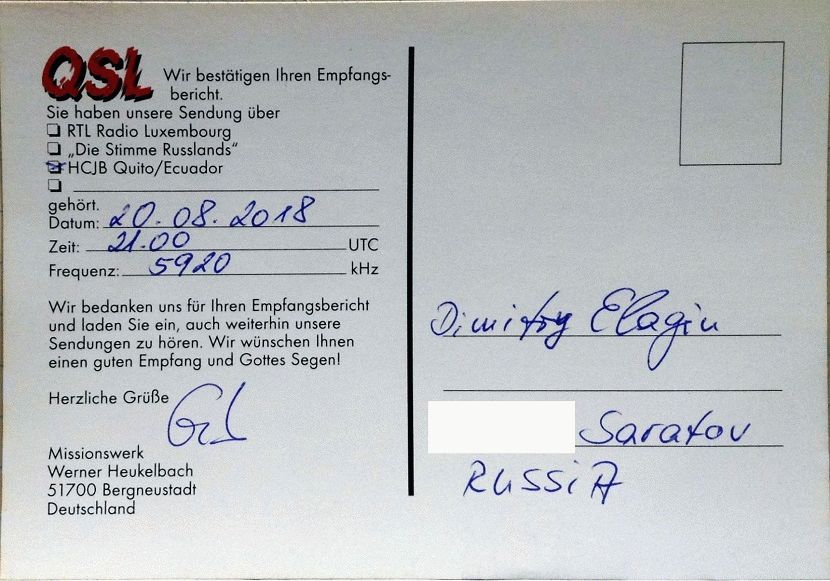 QSL Wir bestätigen Ihren Empfangs-
bericht.
Sie haben unsere Sendung über
❏ RTL Radio Luxembourg
❏ „Die Stimme Russlands“
☒ HCJB Quito/Ecuador
❏
gehört.
Datum: 20.08.2018
Zeit: 21.00 UTC
Frequenz: 5920 kHz
Wir bedanken uns für Ihren Empfangsbericht
und laden Sie ein, auch weiterhin unsere
Sendungen zu hören. Wir wünschen Ihnen
einen guten Empfang und Gottes Segen!
Herzliche Grüße
Missionswerk
Werner Heukelbach
51700 Bergneustadt
Deutschland
Dimitry Elagin
Saratov
RUSSIA